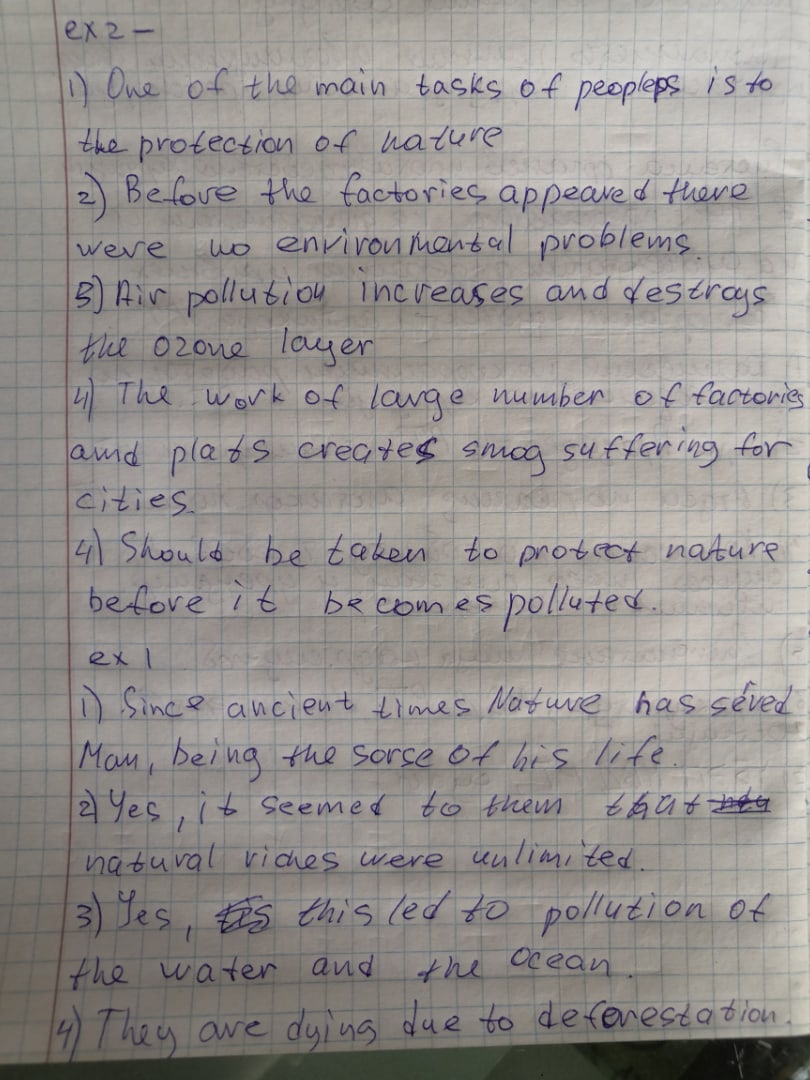 ex 2 –
1) One of the main tasks of peopleps is to
the protection of nature
2) Before the factories appeared there
were no environmental problems.
3) Air pollution increases and destroys
the ozone layer
4) The work of large number of factories
amd plats creates smog suffering for
cities.
4) Should be taken to protect nature
before it becomes polluted.
ex 1
1) Since ancient times Nature has séved
Man, being the sorse of his life.
2) Yes, it seemed to them that
natural riches were unlimited.
3) Yes, this led to pollution of
the water and the ocean.
4) They are dying due to deforestation.